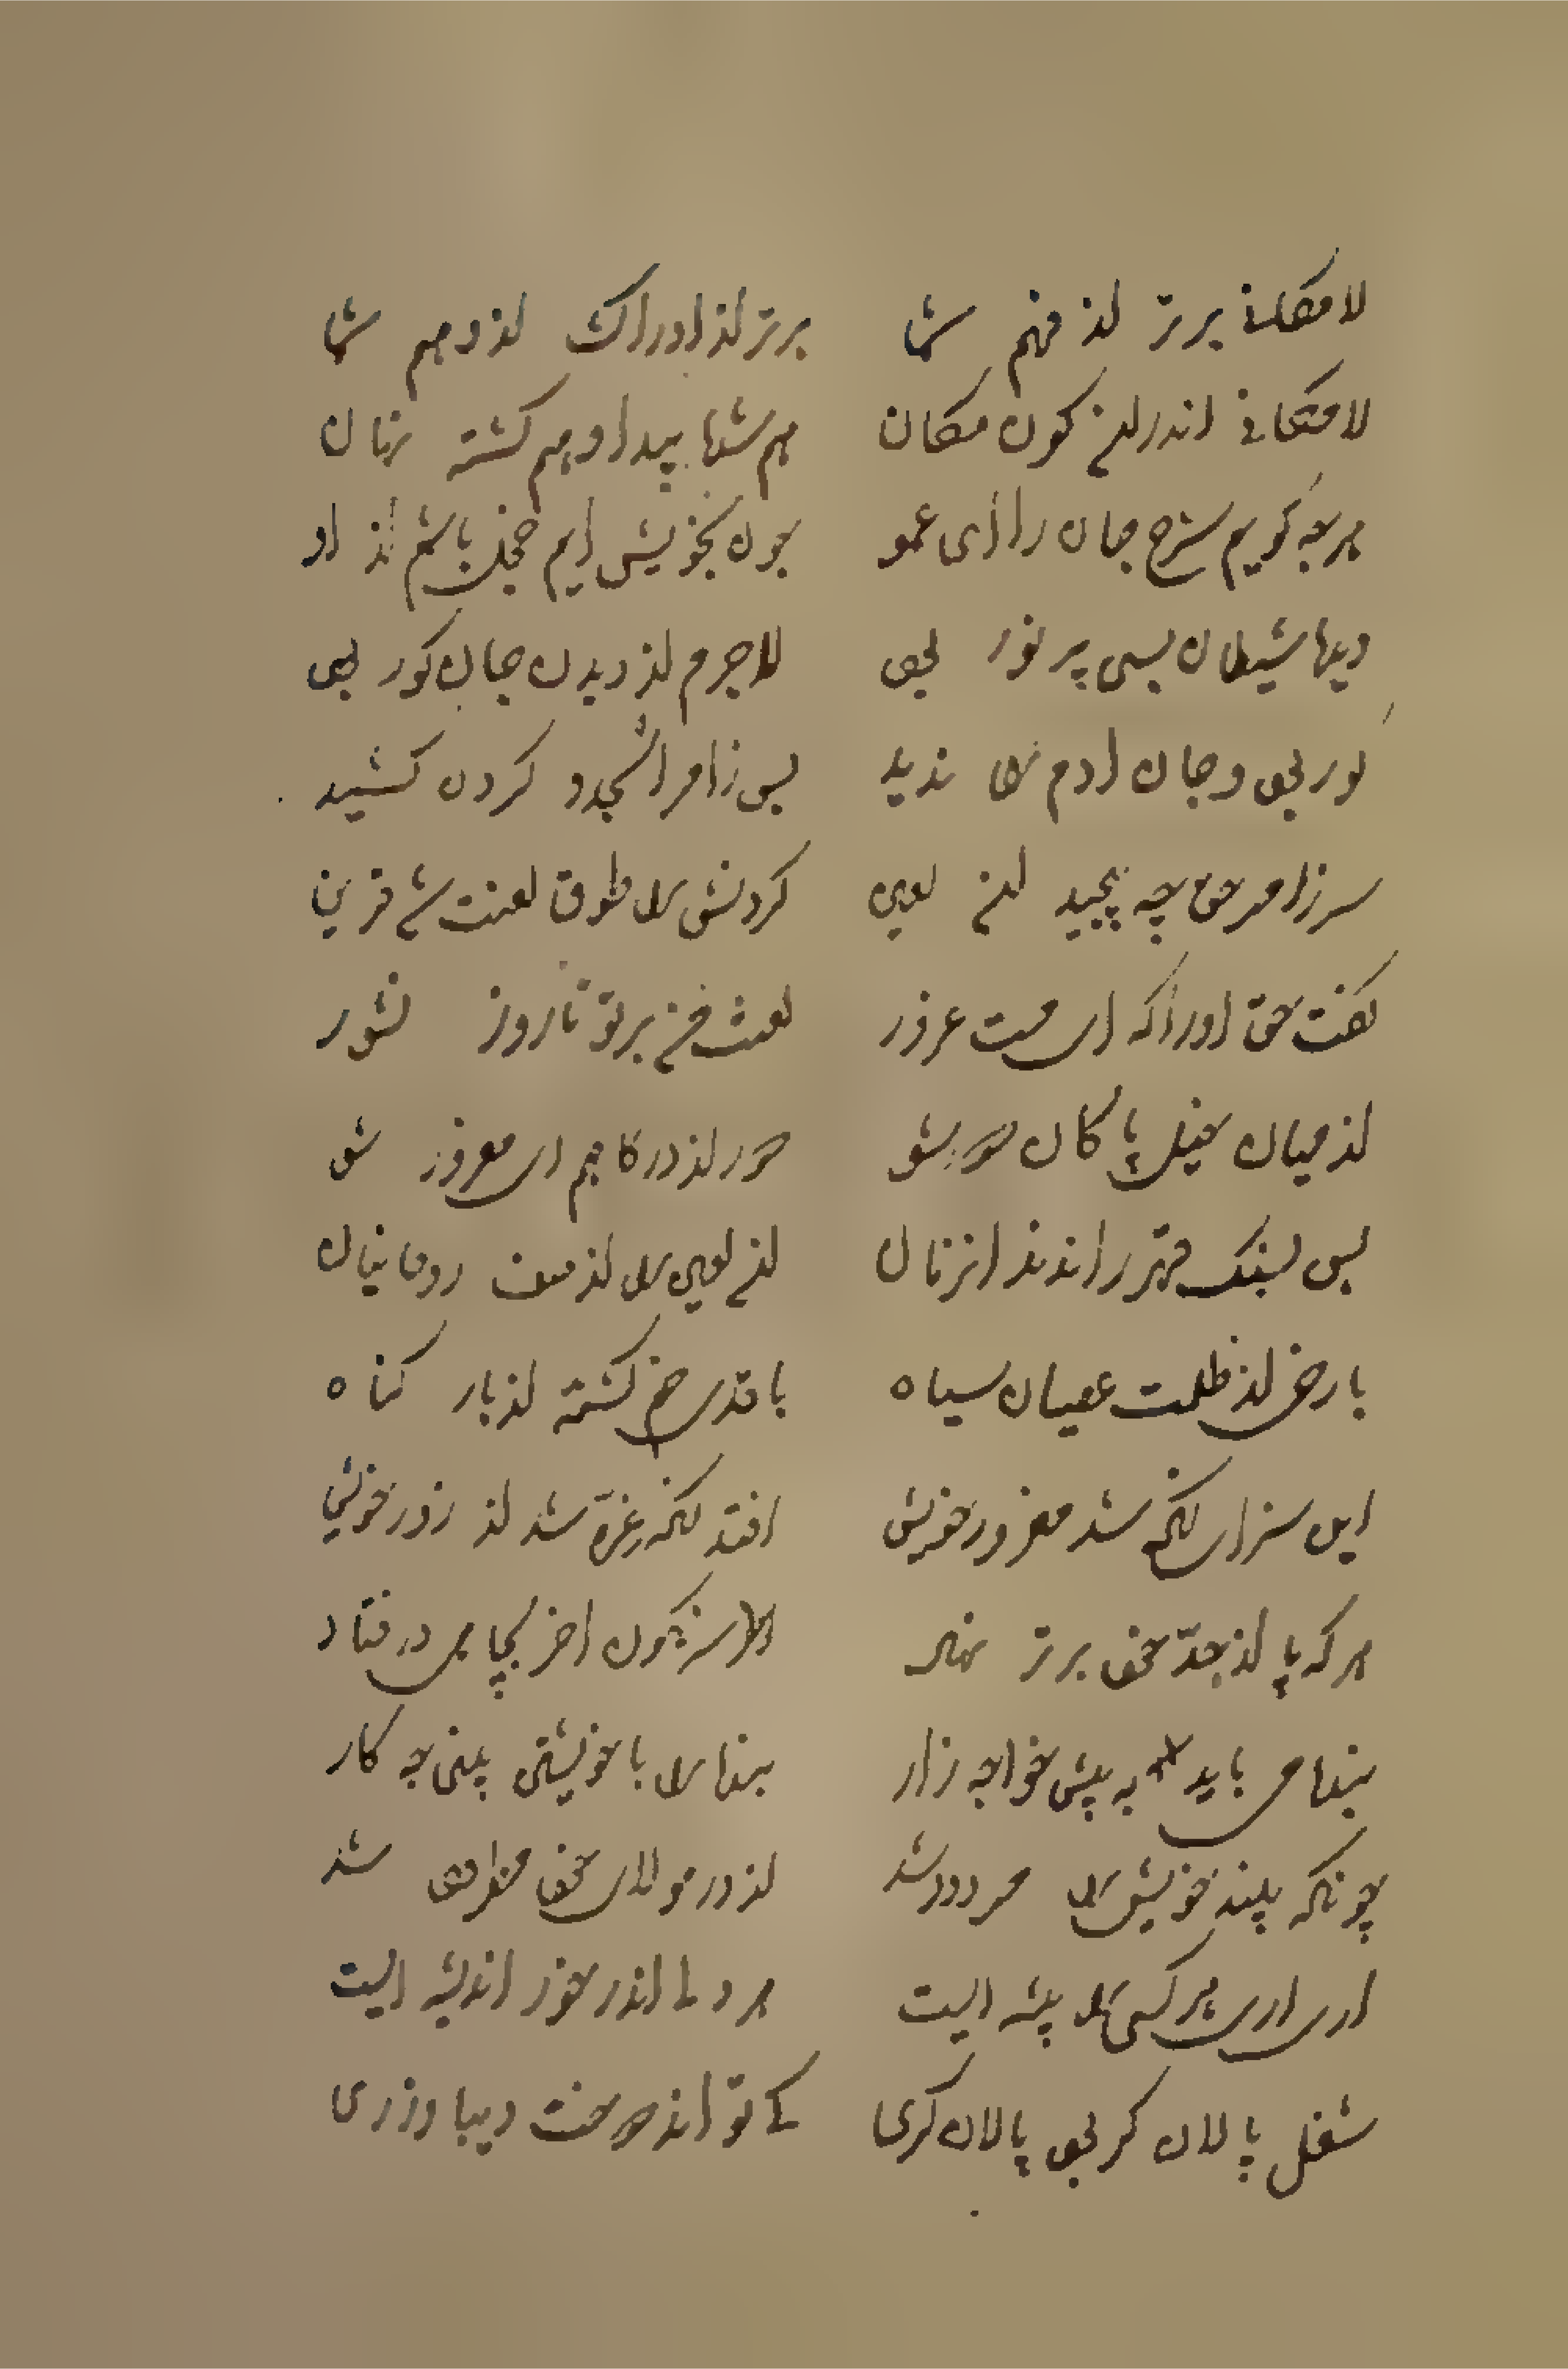 لامکانی برتر از فهم شما برتر از ادراک از وهم شما
لامکانی اندر این کون مکان هم شما پیدا و هم کشته نهان
هرچه کویم شرح جان را ای عمو چون بخویش ایم خجل باشم از او
دیدها شیطان بسی پر نور بود لاجرم از دیدن جان کور بود
کور بود و جان ادم را ندید پس زامر اسجدو کردن کشید
سر زامر حق چه پیچید ان لعین کردنش را طوق لعنت شد قرین
کفت حق اورا که ای مست غرور لعنت من بر تو تا روز نشور
از میان خیل پاکان دور شو دور از درکاهم ای مغرور شو
پس بسنک قهر راندند انزمان ان لعین را از صف روحانیان
با رخی از ظلمت عصیان سیاه با قدی خم کشته از بار کناه
این سزای انکه شد مغرور خویش افتد انکه غره شد از زور خویش
هر که پا از حد خود برتر نهاد سرنکون اخر بچاهی در فتاد
بنده می باید به پیش خواجه زار بنده را با خویشتن بینی چه کار
چونکه بیند خویش را مردود شد از در مولای خود مطرود شد
اری اری هر کسی را پیشه ایست هر دما اندر خور اندیشه ایست
شغل پالان کر بود پالان کری کی تواند دوخت دیبا و زری